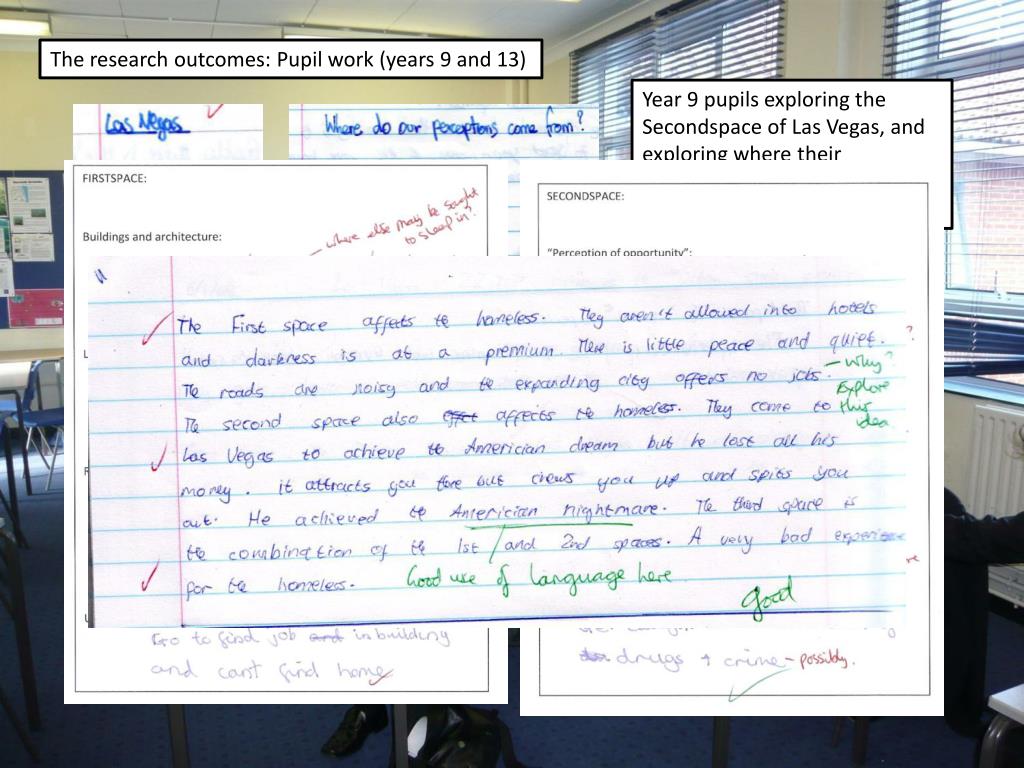 The research outcomes: Pupil work (years 9 and 13)
Year 9 pupils exploring the
Secondspace of Las Vegas, and
exploring where their
Las Vegas
Where do our perceptions come from?
FIRSTSPACE:
Buildings and architecture:
– where else may be sought
to sleep in?
SECONDSPACE:
"Perception of opportunity":
The First space affects te homeless. They aren't allowed into hotels
and darkness is at a premium. There is little peace and quiet. ?
The roads are noisy and te expanding city offers no jobs. – why?
Explore
The second space also effet affects te homeless. They come to this
idea
Las Vegas to achieve te Amercian dream but he lost all his
money. it attracts you there but chews you up and spits you
out. He achieved te Amercian nightmare. The third space is
te combination of te 1st / and 2nd spaces. A very bad
for te homeless. Good use of language here
good
Go to find job and in building
and cant find home
drugs + crime – possibly.